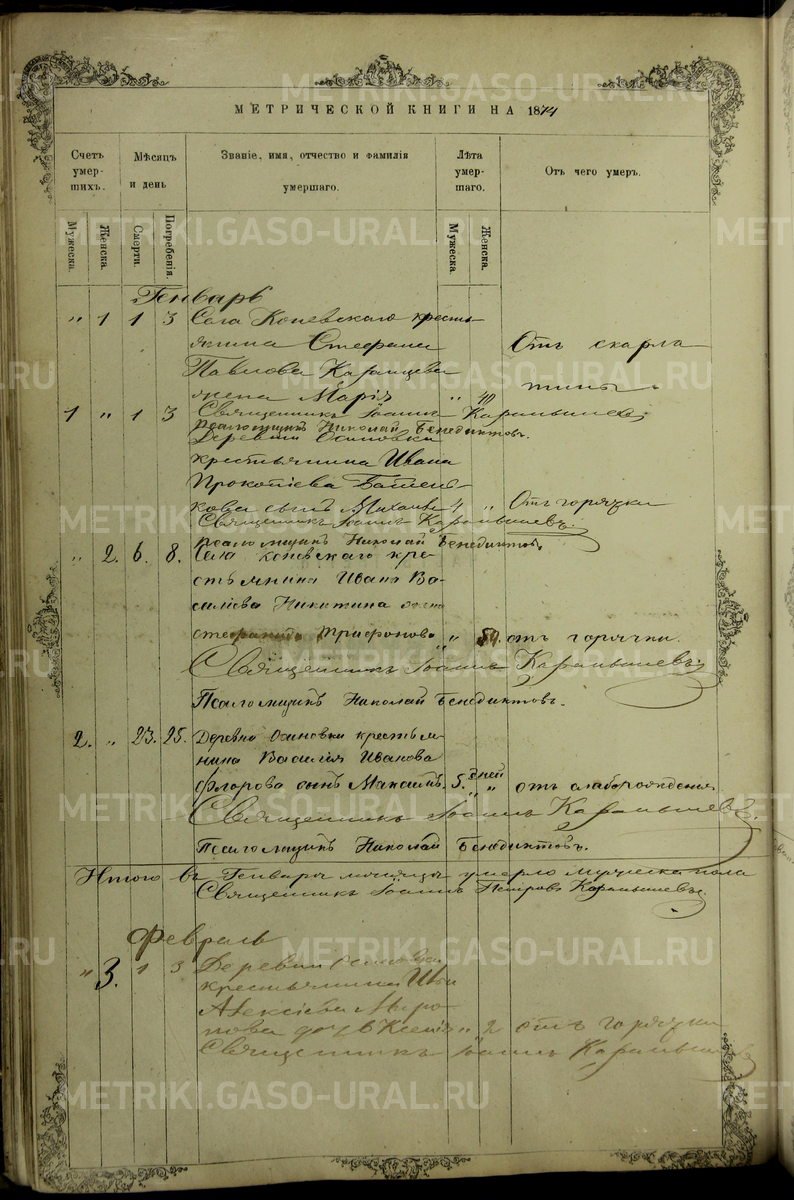 МЕТРИЧЕСКОЙ КНИГИ НА 1874
Счетъ умер-шихъ.
Мѣсяцъ и день
Званіе, имя, отчество и фамилія умершаго.
Лѣта умер-шаго.
Отъ чего умеръ.
Мужеска.
Женска.
Смерти.
Погребенія.
Мужеска.
Женска.
Генварь
" 1 1 3 Села Коневскаго кресть-
янина Стефана Отъ скарла
Павлова Карамцева тины.
жена Марія " 40
Священникъ Іоаннъ Карамышевъ
1 " 1 3 Псаломщикъ Николай Бенедиктовъ.
Деревни Осиновки
крестьянина Ивана
Прокопіева
кова сынъ 4 " Отъ горячки
Священникъ Іоаннъ Карамышевъ
Псаломщикъ Николай Бенедиктовъ
" 2. 6. 8. Села Коневскаго кре-
стьянина Ивана Ва-
силіева Никитина жена
Стефанида Трифонова " 50. отъ горячки.
Священникъ Іоаннъ Карамышевъ
Псаломщикъ Николай Бенедиктовъ.
2. " 23. 25. Деревни Осиновки крестья-
нина Василія Иванова
Фларова сынъ Максимъ. 5. дней " отъ слаборожденія
Священникъ Іоаннъ Карамышевъ.
Псаломщикъ Николай Бенедиктовъ.
Итого въ Генварѣ мѣсяцѣ умерло мужеска пола
Священникъ Іоаннъ Петровъ Карамышевъ.
Февраль
" 3. 1 3 Деревни Осиновки
крестьянина
Алексіева Миро-
нова дочь Ксенія " 2 отъ горячки
Священникъ Іоаннъ Карамышевъ
METRIKI.GASO-URAL.RU